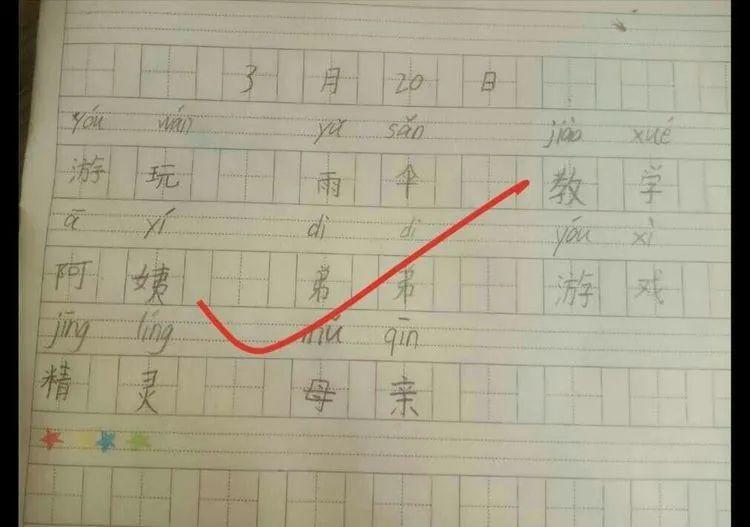 3 月 20 日
yóu wán yǔ sǎn jiào xué
游 玩 雨 伞 教 学
ā yí dì di yóu xì
阿 姨 弟 弟 游 戏
jīng líng mǔ qīn
精 灵 母 亲